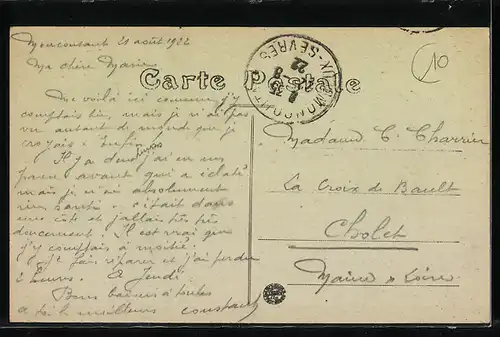 Moncoutant 21 août 1922
Ma chère Marie
Carte Postale
MONCOUTANT
X-SEVRES
22
10
Me voilà ici comme j'y
comptais bien, mais je n'ai pas
vu autant de monde que je
croyais. Enfin
Il y a deux jours j'ai eu un
pneu avant qui a éclaté
mais je n'ai absolument
rien senti. c'était dans
une côte et j'allais très très
doucement. Il est vrai que
j'y comptais à moitié.
Je fais réparer et j'ai perdu
2 heures. A Jeudi.
Bons baisers à toutes
meilleurs Constant
Madame C. Charrier
La Croix de Bault
Cholet
Maine & Loire